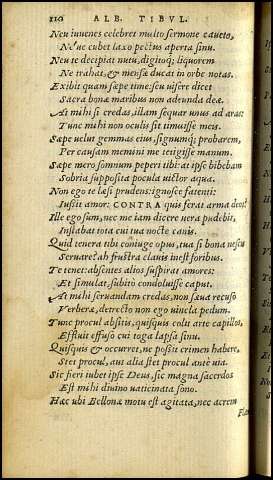 110 ALB. TIBVL.
Neu iuuenes celebret multo sermone caueto,
Neue cubet laxo pectus aperta sinu.
Neu te decipiat nutu, digitoq; liquorem
Ne trahat, & mensæ ducat in orbe notas.
Exibit quam sæpe time: seu uisere dicet
Sacra bonæ maribus non adeunda deæ.
At mihi si credas, illam sequar unus ad aras:
Tunc mihi non oculis sit timuisse meis.
Sæpe uelut gemmas eius, signumq; probarem,
Per causam memini me tetigisse manum.
Sæpe mero somnum peperi tibi: at ipse bibebam
Sobria supposita pocula uictor aqua.
Non ego te læsi prudens: ignosce fatenti:
Iussit amor: CONTRA quis ferat arma deos?
Ille ego sum, nec me iam dicere uera pudebit,
Instabat tota cui tua nocte canis.
Quid tenera tibi coniuge opus, tua si bona nescis
Seruare? ah frustra clauis inest foribus.
Te tenet: absentes alios suspirat amores:
Et simulat, subitò condoluisse caput.
At mihi seruandam credas, non sæua recuso
Verbera, detrecto non ego uincla pedum.
Tunc procul absitis, quisquis colit arte capillos,
Effluit effuso cui toga lapsa sinu.
Quisquis & occurret, ne possit crimen habere,
Stet procul, aus alia stet procul ante uia.
Sic fieri iubet ipse Deus, sic magna sacerdos
Est mihi diuino uaticinata sono.
Hæc ubi Bellonæ motu est agitata, nec acrem